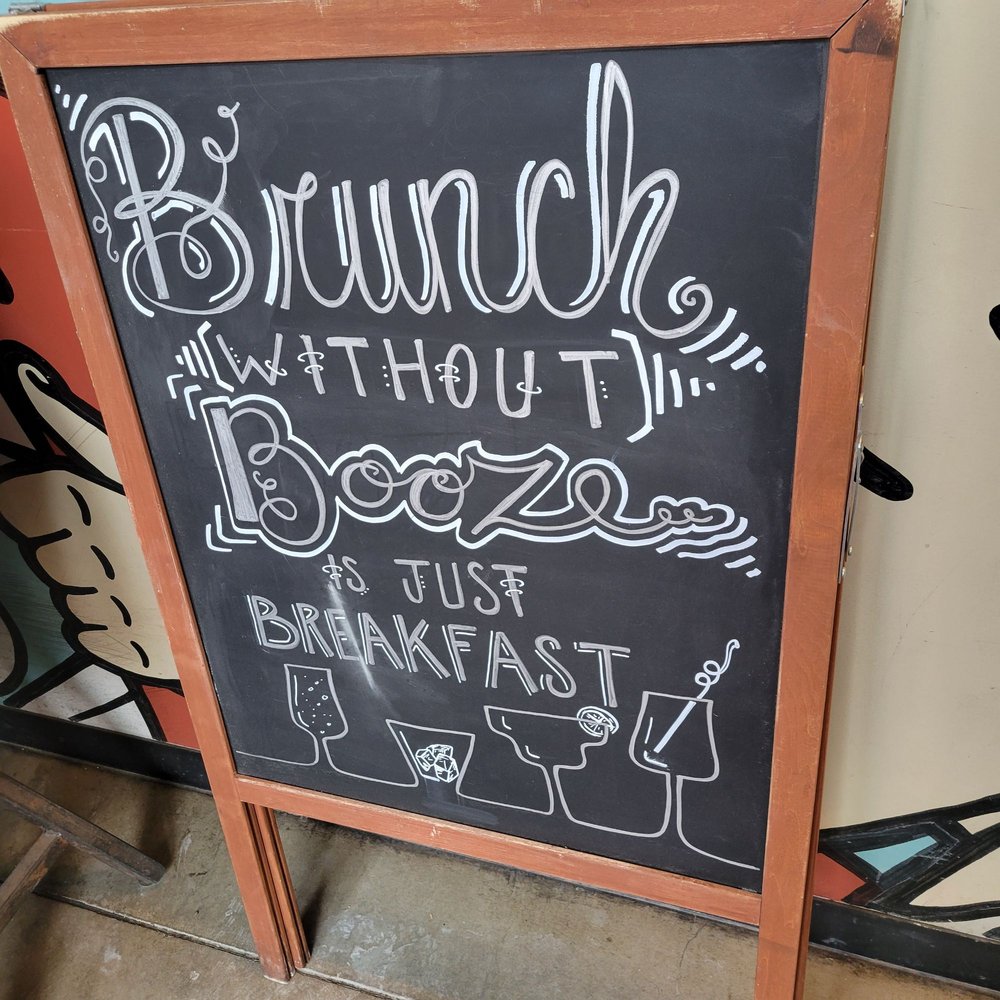 Brunch
(WITHOUT)
Booze
IS JUST
BREAKFAST